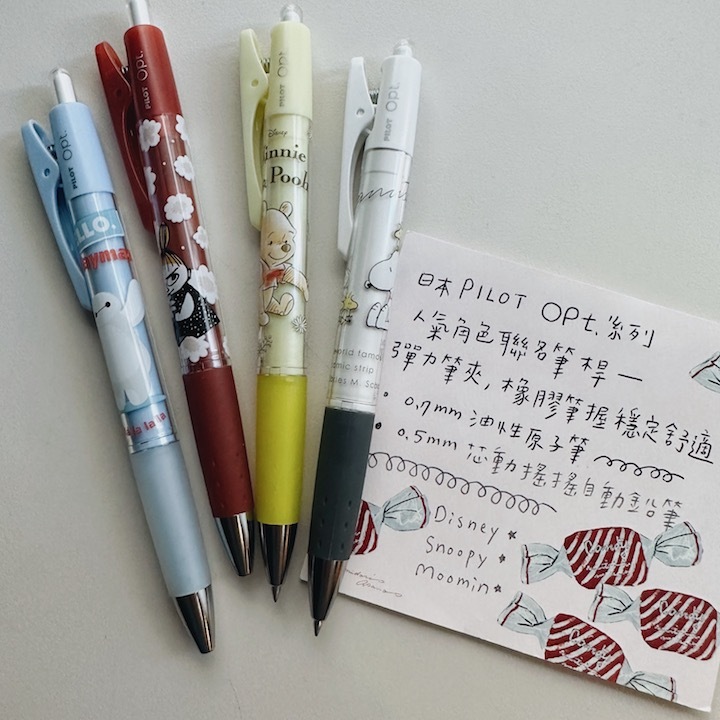 PILOT Opt.
LLO.
aymax
la la la
PILOT Opt.
PILOT Opt.
Disney
innie
Pooh
PILOT Opt.
world famous
omic strip
les M. Sc
日本 PILOT OPt. 系列
人氣角色聯名筆桿—
彈力筆夾, 橡膠筆握穩定舒適
• 0.7mm 油性原子筆
• 0.5mm 芯動搖搖自動鉛筆
Disney
Snoopy
Moomin
Candy
Candy
Candy